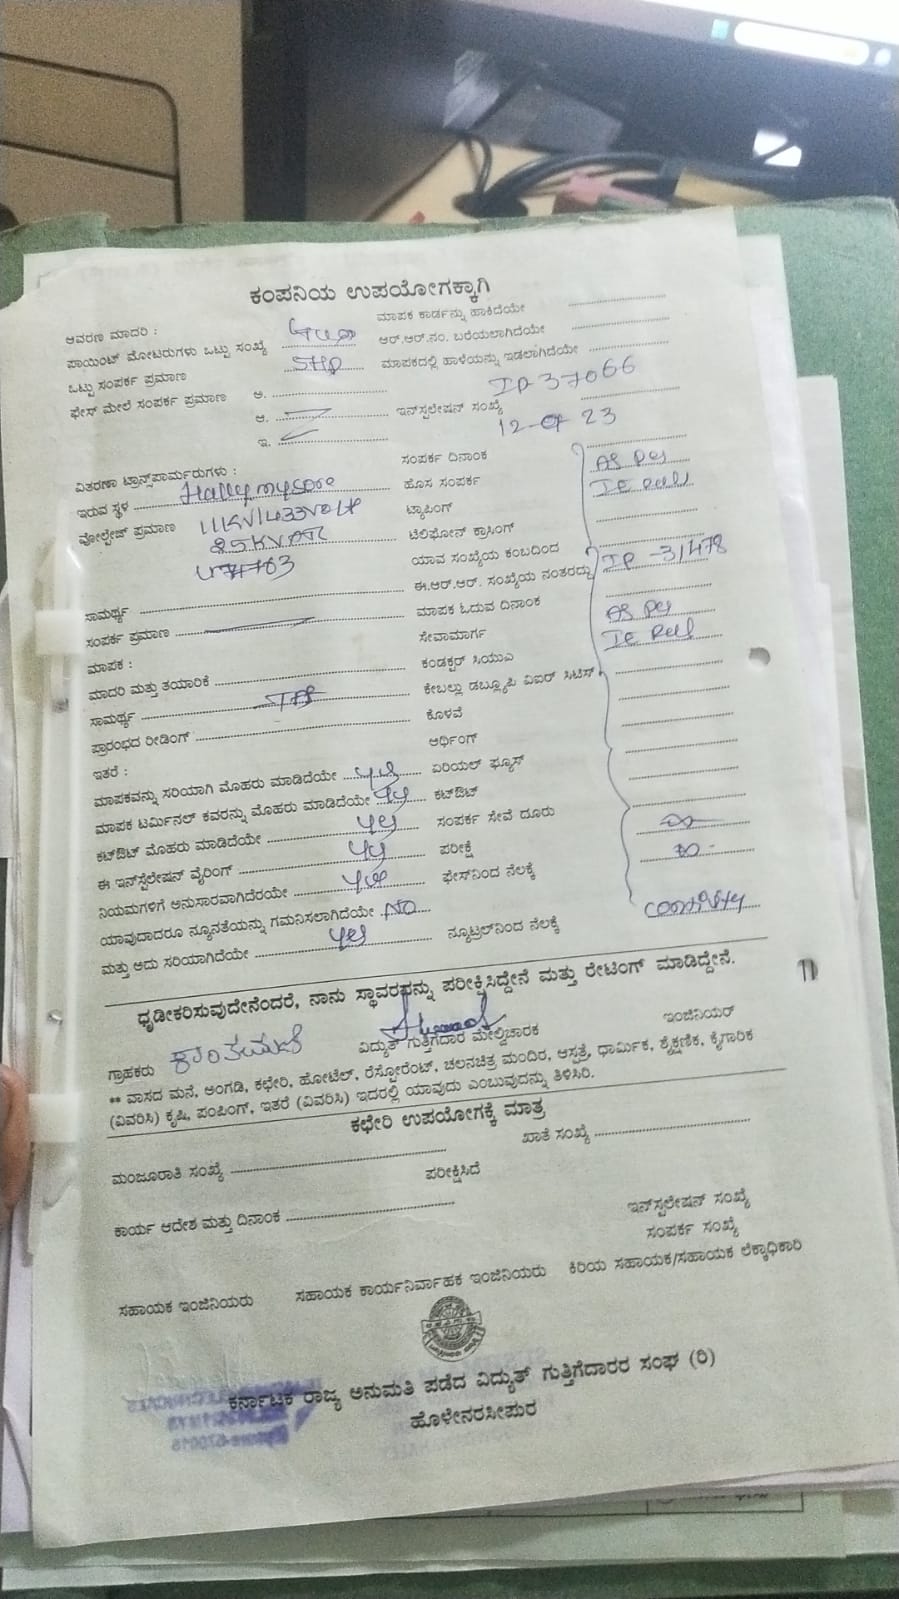 ಕಂಪನಿಯ ಉಪಯೋಗಕ್ಕಾಗಿ
ಆವರಣ ಮಾದರಿ : ಮಾಪಕ ಕಾರ್ಡನ್ನು ಹಾಕಿದೆಯೇ
ಪಾಯಿಂಟ್ ಮೋಟರುಗಳು ಒಟ್ಟು ಸಂಖ್ಯೆ ಆರ್.ಆರ್.ನಂ. ಬರೆಯಲಾಗಿದೆಯೇ
ಒಟ್ಟು ಸಂಪರ್ಕ ಪ್ರಮಾಣ 5HP ಮಾಪಕದಲ್ಲಿ ಹಾಳೆಯನ್ನು ಇಡಲಾಗಿದೆಯೇ
ಫೇಸ್ ಮೇಲೆ ಸಂಪರ್ಕ ಪ್ರಮಾಣ ಅ. IP 37066
ಆ. ಇನ್‌ಸ್ಟಲೇಷನ್ ಸಂಖ್ಯೆ
ಇ. 23
ವಿತರಣಾ ಟ್ರಾನ್ಸ್‌ಪಾರ್ಮರುಗಳು : ಸಂಪರ್ಕ ದಿನಾಂಕ As per
ಇರುವ ಸ್ಥಳ Hallymysore ಹೊಸ ಸಂಪರ್ಕ IE
ವೋಲ್ಟೇಜ್ ಪ್ರಮಾಣ 11KV/433Volt ಟ್ಯಾಪಿಂಗ್
25KVA ಟೆಲಿಫೋನ್ ಕ್ರಾಸಿಂಗ್
ಯಾವ ಸಂಖ್ಯೆಯ ಕಂಬದಿಂದ IP-31478
ಸಾಮರ್ಥ್ಯ ಈ.ಆರ್.ಆರ್. ಸಂಖ್ಯೆಯ ನಂತರದ್ದು
ಸಂಪರ್ಕ ಪ್ರಮಾಣ ಮಾಪಕ ಓದುವ ದಿನಾಂಕ As per
ಮಾಪಕ : ಸೇವಾಮಾರ್ಗ IE
ಮಾದರಿ ಮತ್ತು ತಯಾರಿಕೆ ಕಂಡಕ್ಟರ್ ಸಿಯುಎ
ಸಾಮರ್ಥ್ಯ ಕೇಬಲ್ಲು ಡಬ್ಲ್ಯೂಪಿ ವಿಐಆರ್ ಸಿಟಿಸ್
ಪ್ರಾರಂಭದ ರೀಡಿಂಗ್ ಕೊಳವೆ
ಇತರೆ : ಅರ್ಥಿಂಗ್
ಮಾಪಕವನ್ನು ಸರಿಯಾಗಿ ಮೊಹರು ಮಾಡಿದೆಯೇ yes ಏರಿಯಲ್ ಫ್ಯೂಸ್
ಮಾಪಕ ಟರ್ಮಿನಲ್ ಕವರನ್ನು ಮೊಹರು ಮಾಡಿದೆಯೇ yes ಕಟ್‌ಔಟ್
ಕಟ್‌ಔಟ್ ಮೊಹರು ಮಾಡಿದೆಯೇ yes ಸಂಪರ್ಕ ಸೇವೆ ದೂರು
ಈ ಇನ್‌ಸ್ಟೆಲೇಷನ್ ವೈರಿಂಗ್ yes ಪರೀಕ್ಷೆ
ನಿಯಮಗಳಿಗೆ ಅನುಸಾರವಾಗಿದೆರಯೇ yes ಫೇಸ್‌ನಿಂದ ನೆಲಕ್ಕೆ
ಯಾವುದಾದರೂ ನ್ಯೂನತೆಯನ್ನು ಗಮನಿಸಲಾಗಿದೆಯೇ No
ಮತ್ತು ಅದು ಸರಿಯಾಗಿದೆಯೇ yes ನ್ಯೂಟ್ರಲ್‌ನಿಂದ ನೆಲಕ್ಕೆ
ಧೃಡೀಕರಿಸುವುದೇನೆಂದರೆ, ನಾನು ಸ್ಥಾವರವನ್ನು ಪರೀಕ್ಷಿಸಿದ್ದೇನೆ ಮತ್ತು ರೇಟಿಂಗ್ ಮಾಡಿದ್ದೇನೆ.
ಗ್ರಾಹಕರು ವಿದ್ಯುತ್ ಗುತ್ತಿಗೆದಾರ ಮೇಲ್ವಿಚಾರಕ ಇಂಜಿನಿಯರ್
** ವಾಸದ ಮನೆ, ಅಂಗಡಿ, ಕಛೇರಿ, ಹೋಟೆಲ್, ರೆಸ್ಟೋರೆಂಟ್, ಚಲನಚಿತ್ರ ಮಂದಿರ, ಆಸ್ಪತ್ರೆ, ಧಾರ್ಮಿಕ, ಶೈಕ್ಷಣಿಕ, ಕೈಗಾರಿಕ
(ವಿವರಿಸಿ) ಕೃಷಿ, ಪಂಪಿಂಗ್, ಇತರೆ (ವಿವರಿಸಿ) ಇದರಲ್ಲಿ ಯಾವುದು ಎಂಬುವುದನ್ನು ತಿಳಿಸಿರಿ.
ಕಛೇರಿ ಉಪಯೋಗಕ್ಕೆ ಮಾತ್ರ
ಮಂಜೂರಾತಿ ಸಂಖ್ಯೆ ಖಾತೆ ಸಂಖ್ಯೆ
ಪರೀಕ್ಷಿಸಿದೆ
ಕಾರ್ಯ ಆದೇಶ ಮತ್ತು ದಿನಾಂಕ ಇನ್‌ಸ್ಟಲೇಷನ್ ಸಂಖ್ಯೆ
ಸಂಪರ್ಕ ಸಂಖ್ಯೆ
ಸಹಾಯಕ ಇಂಜಿನಿಯರು ಸಹಾಯಕ ಕಾರ್ಯನಿರ್ವಾಹಕ ಇಂಜಿನಿಯರು ಕಿರಿಯ ಸಹಾಯಕ/ಸಹಾಯಕ ಲೆಕ್ಕಾಧಿಕಾರಿ
ಕರ್ನಾಟಕ ರಾಜ್ಯ ಅನುಮತಿ ಪಡೆದ ವಿದ್ಯುತ್ ಗುತ್ತಿಗೆದಾರರ ಸಂಘ (ರಿ)
ಹೊಳೇನರಸೀಪುರ